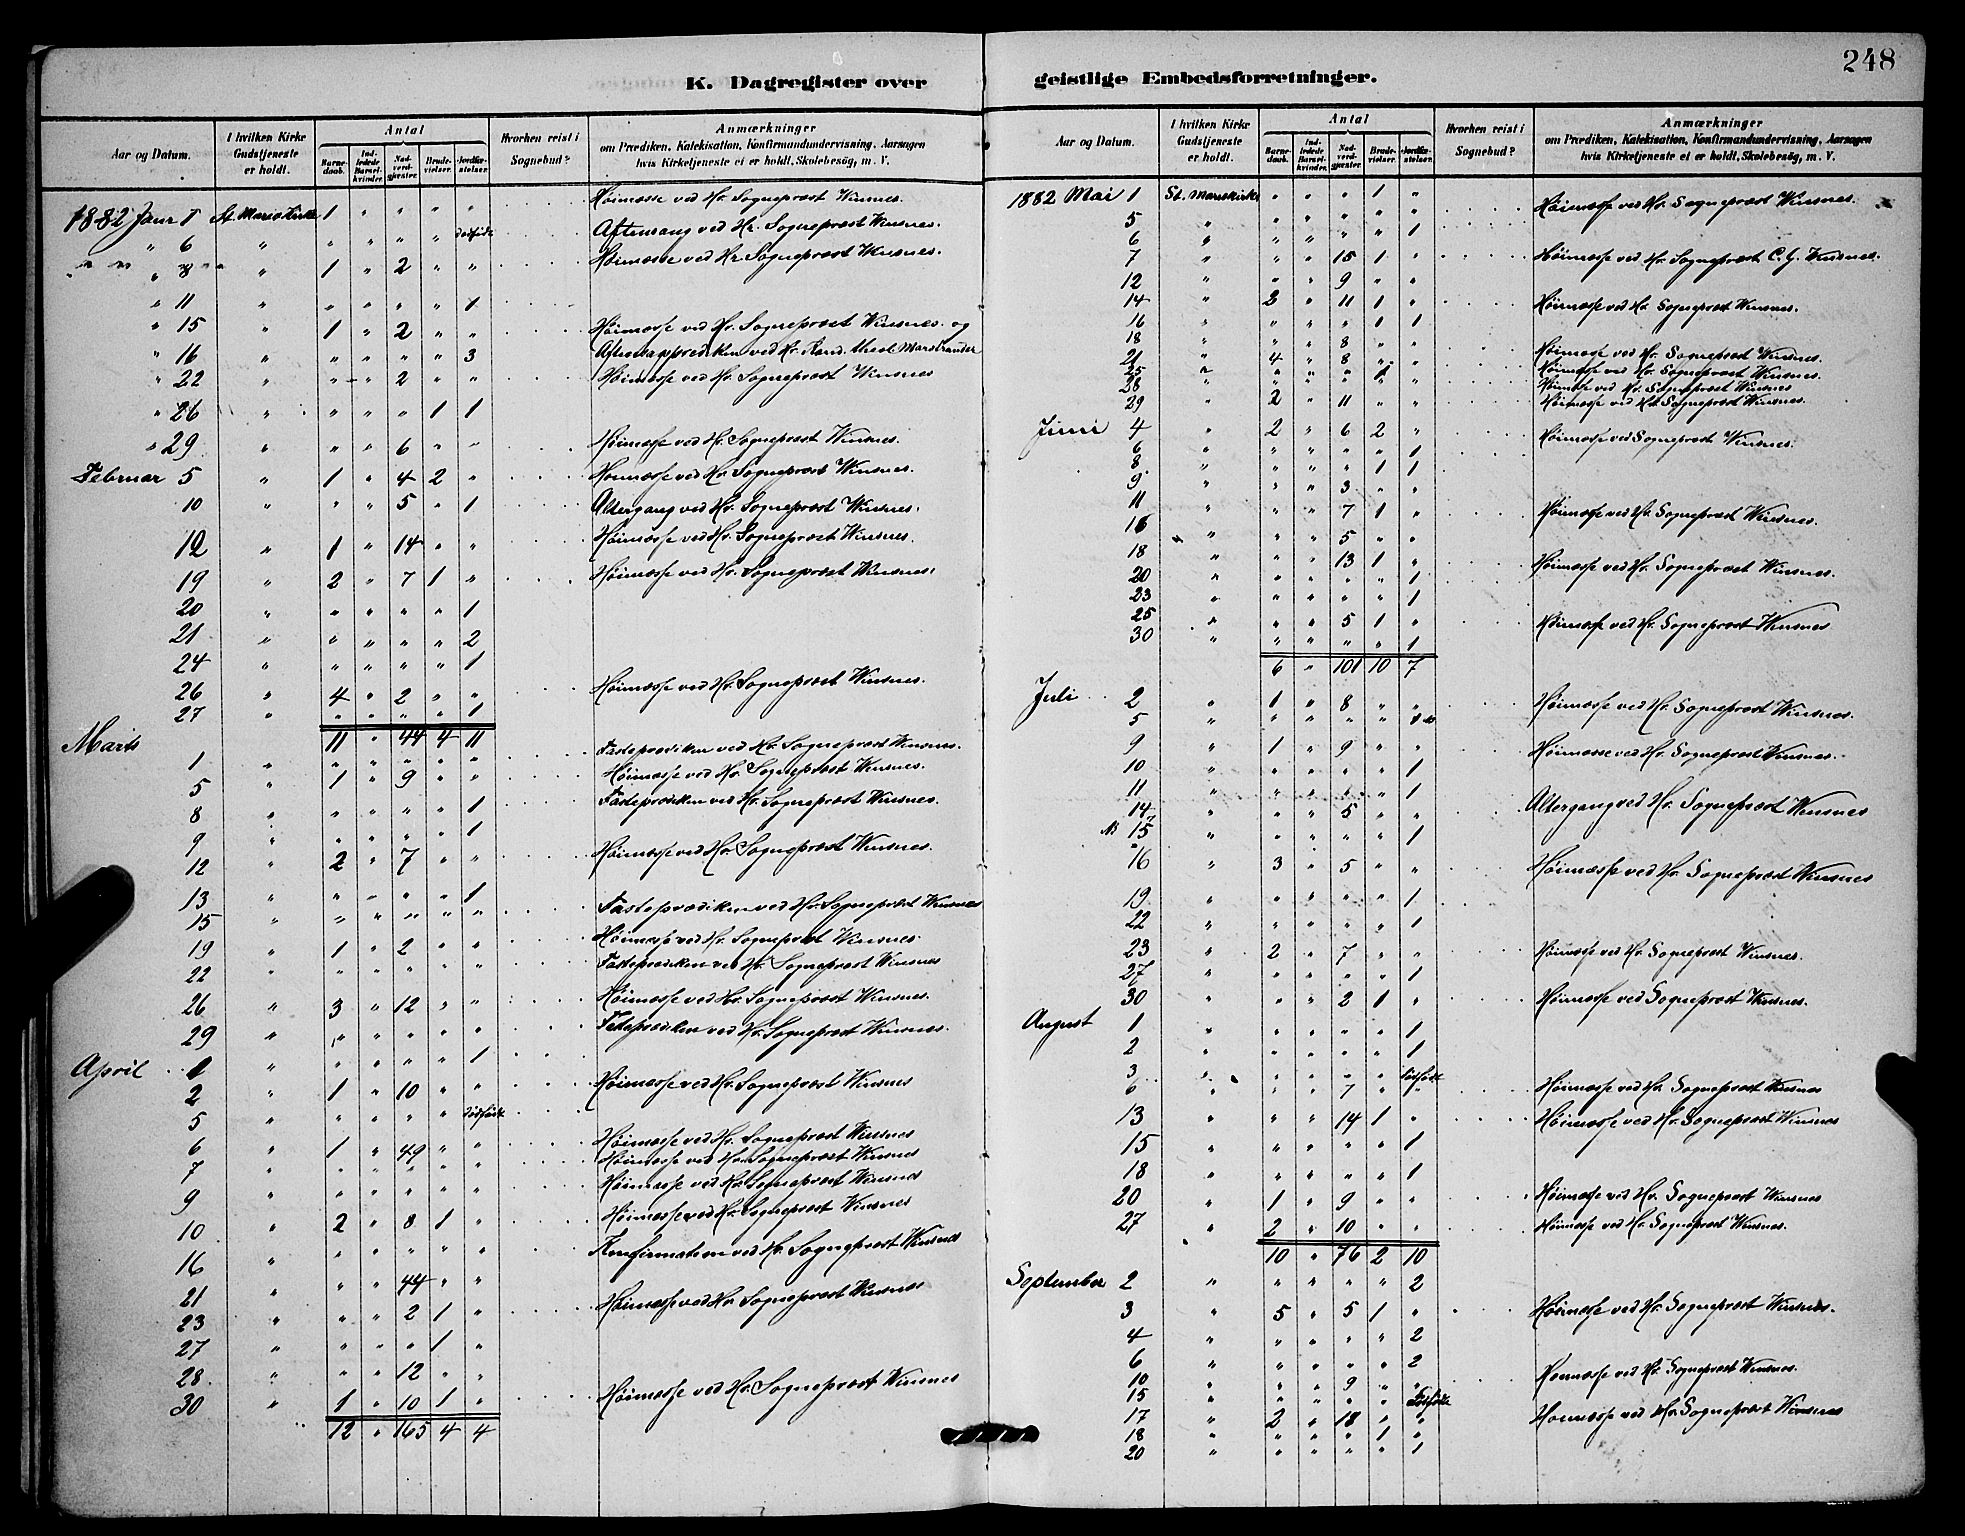 248
K. Dagregister over geistlige Embedsforretninger.
Aar og Datum. I hvilken Kirke Gudstjeneste er holdt. Antal Barnedaab. Indledede Barselkvinder. Nadverdgjester. Brudevielser. Jordfæstelser. Hvorhen reist i Sognebud? Anmærkninger om Prædiken, Katekisation, Konfirmandundervisning, Aarsagen hvis Kirketjeneste ei er holdt, Skolebesög, m. V.
1882 Janr 1 St. Maria Kirke 1 " " " " Høimesse ved Hr. Sogneprest Winsnes.
" 6 " " " " " dødfødt Aftensang ved Hr. Sogneprest Winsnes.
" 8 " 1 " 2 " " Høimesse ved Hr Sogneprest Winsnes.
" 11 " " " " " 1
" 15 " 1 " 2 " " Høimesse ved Hr. Sogneprest Winsnes. og
" 16 " " " " " 3 Aftensprediken ved Hr. Kand. theol Marstrander
" 22 " " " 2 " " Høimesse ved Hr. Sogneprest Winsnes
" 26 " " " " 1 1
" 29 " " " 6 " " Høimesse ved Hr. Sogneprest Winsnes.
Februar 5 " 1 " 4 2 " Høimesse ved Hr. Sogneprest Winsnes.
10 " " " 5 " 1 Altergang ved Hr. Sogneprest Winsnes.
12 " 1 " 14 " " Høimesse ved Hr. Sogneprest Winsnes.
19 " 2 " 7 1 " Høimesse ved Hr. Sogneprest Winsnes.
20 " " " " " 1
21 " " " " " 2
24 " " " " " 1
26 " 4 " 2 " " Høimesse ved Hr. Sogneprest Winsnes.
27 " " " " " 1
11 " 44 4 11
Marts 1 " " " " " " Fasteprediken ved Hr. Sogneprest Winsnes.
5 " 1 " 9 " " Høimesse ved Hr. Sogneprest Winsnes.
8 " " " " " 1 Fasteprediken ved Hr. Sogneprest Winsnes.
9 " " " " " 1
12 " 2 " 7 " " Høimesse ved Hr. Sogneprest Winsnes.
13 " " " " " 1
15 " " " " " " Fasteprediken ved Hr. Sogneprest Winsnes
19 " 1 " 2 " " Høimesse ved Hr. Sogneprest Winsnes.
22 " " " " " " Fasteprediken ved Hr. Sogneprest Winsnes
26 " 3 " 12 " " Høimesse ved Hr. Sogneprest Winsnes.
29 " " " " " " Fasteprediken ved Hr. Sogneprest Winsnes.
April 1 " " " " " 1
2 " 1 " 10 " " Høimesse ved Hr. Sogneprest Winsnes
5 " " " " " dødfødt
6 " 1 " 49 " " Høimesse ved Hr. Sogneprest Winsnes
7 " " " " " " Høimesse ved Hr. Sogneprest Winsnes
9 " " " " " " Høimesse ved Hr. Sogneprest Winsnes
10 " 2 " 8 1 " Høimesse ved Hr. Sogneprest Winsnes
16 " " " " " " Konfirmation ved Hr. Sogneprest Winsnes
21 " " " 44 " "
23 " " " 2 1 " Høimesse ved Hr. Sogneprest Winsnes
27 " " " " 1 "
28 " " " 12 " "
30 " 1 " 10 1 " Høimesse ved Hr. Sogneprest Winsnes
12 " 165 4 4
Aar og Datum. I hvilken Kirke Gudstjeneste er holdt. Antal Barnedaab. Indledede Barselkvinder. Nadverdgjester. Brudevielser. Jordfæstelser. Hvorhen reist i Sognebud? Anmærkninger om Prædiken, Katekisation, Konfirmandundervisning, Aarsagen hvis Kirketjeneste ei er holdt, Skolebesög, m. V.
1882 Mai 1 St. Mariakirke " " " 1 " Høimesse ved Hr. Sogneprest Winsnes.
5 " " " " " "
6 " " " " " 1
7 " " " 15 1 " Høimesse ved Hr. Sogneprest C. G. Winsnes.
12 " " " 9 " "
14 " 2 " 11 1 " Høimesse ved Hr. Sogneprest Winsnes.
16 " " " " 1 1
18 " " " 8 " "
21 " 4 " 8 " " Høimesse ved Hr. Sogneprest Winsnes.
25 " " " " 1 " Høimesse ved Hr. Sogneprest Winsnes.
28 " " " " " " Høimesse ved Hr. Sogneprest Winsnes
29 " 2 " 11 " " Høimesse ved Hr. Sogneprest Winsnes.
Juni 4 " 2 " 6 2 " Høimesse ved Sogneprest Winsnes.
6 " " " " " 1
8 " " " " 1 1
9 " " " 3 " "
11 " " " 7 1 " Høimesse ved Hr. Sogneprest Winsnes.
16 " " " 5 " "
18 " " " 13 1 " Høimesse ved Hr. Sogneprest Winsnes.
20 " " " " " 1
23 " " " " " 1
25 " " " 5 1 " Høimesse ved Hr. Sogneprest Winsnes
30 " " " " " 1
6 " 101 10 7
Juli 2 " 1 " 8 " " Høimesse ved Hr. Sogneprest Winsnes.
5 " " " " "
9 " 1 " 9 " " Høimesse ved Hr. Sogneprest Winsnes.
10 " " " " " 1
11 " " " " " 1
14 " " " 5 " " Altergang ved Hr. Sogneprest Winsnes
15 " " " " " 1
16 " 3 " 5 " " Høimesse ved Hr. Sogneprest Winsnes
19 " " " " " 1
22 " " " " " 1
23 " 2 " 7 " " Høimesse ved Hr. Sogneprest Winsnes.
27 " " " " " 1
30 " " " 2 1 " Høimesse ved Sogneprest Winsnes.
August 1 " " " " " 1
2 " " " " " 1
3 " " " " " dødfødt
6 " " " 7 " " Høimesse ved Hr. Sogneprest Winsnes
13 " " " 14 1 " Høimesse ved Hr. Sogneprest Winsnes
15 " " " " " 1
18 " " " " " 1
20 " 1 " 9 " " Høimesse ved Hr. Sogneprest Winsnes
27 " 2 " 10 " " Høimesse ved Hr. Sogneprest Winsnes.
10 " 76 2 10
September 2 " " " " " 2
3 " 5 " 5 1 " Høimesse ved Hr. Sogneprest Winsnes.
4 " " " " " 2
6 " " " " " 2
10 " " " 9 " " Høimesse ved Hr. Sogneprest Winsnes.
15 " " " " " dødfødt
17 " 2 " 18 " " Høimesse ved Hr. Sogneprest Winsnes
18 " " " " 1 "
20 " " " " " 1